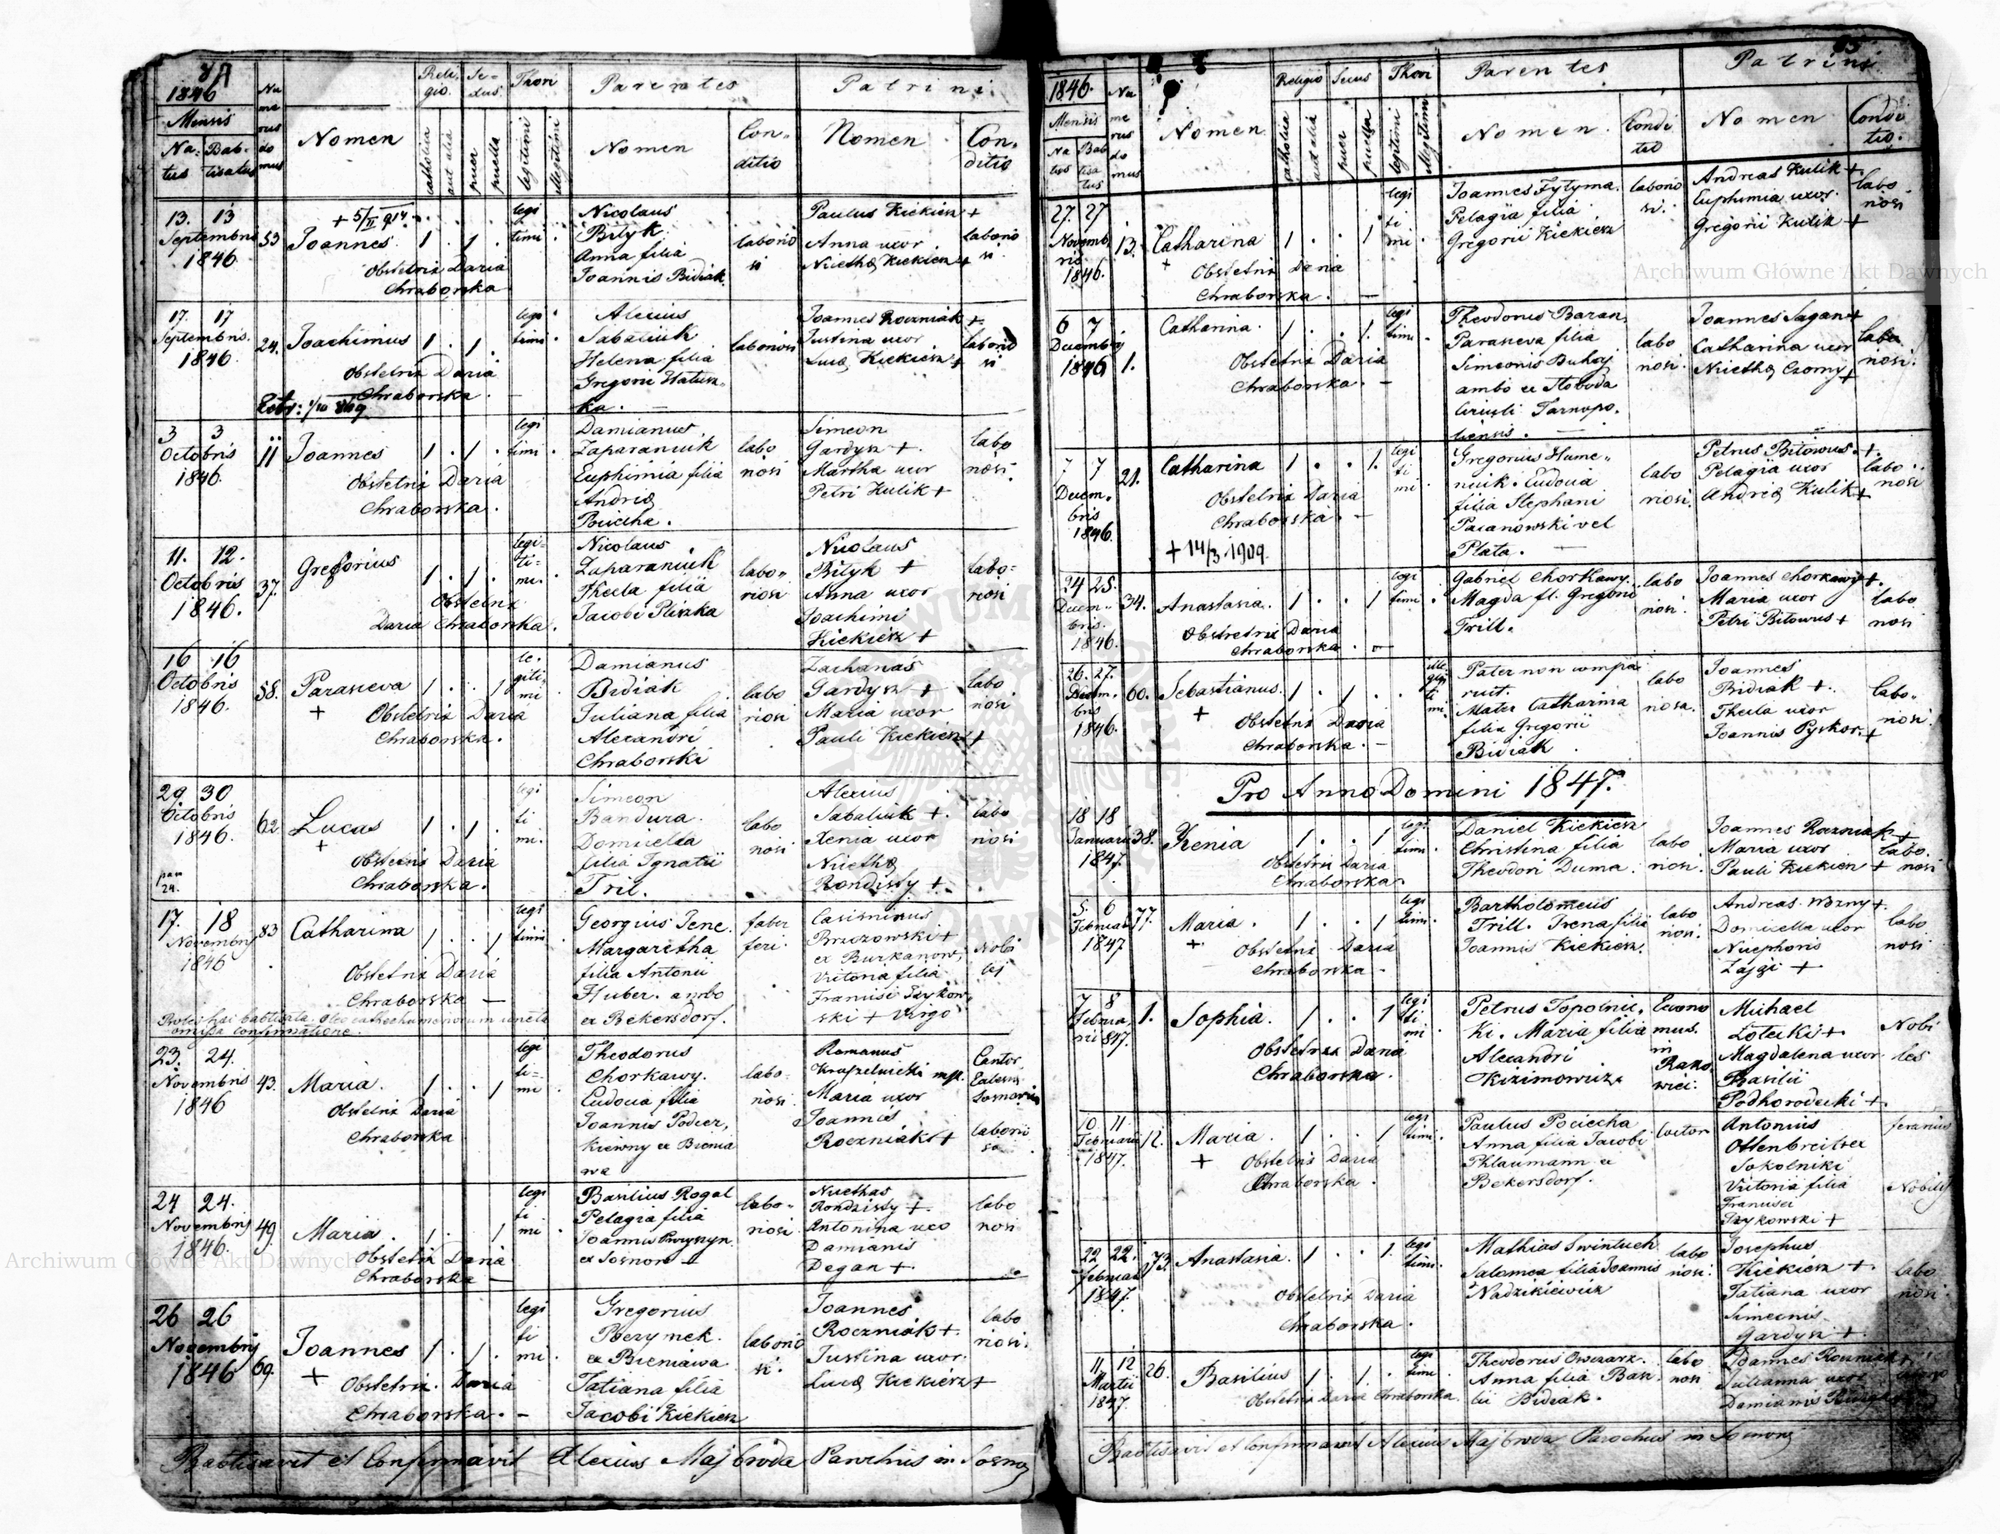 1846
Mensis
Natus
Babtisatus
Numerus domus
Nomen
Religio
catholica
aut alia
Sexus
puer
puella
Thori
legitimi
illegitimi
Parentes
Nomen
Conditio
Patrini
Nomen
Conditio
13. 13
Septembris
1846
53
Joannes
1 . 1 .
Obstetrix Daria
Chraborska
legi
timi
Nicolaus
Bilyk
Anna filia
Joannis Bidiak
laborio
si
Paulus Kiekisz +
Anna uxor
Kiekisz +
laborio
si
17. 17
Septembris
1846
24.
Joachimus
1 . 1
Obstetrix Daria
Chraborska
legi
timi
Alexius
Sabaliuk
Helena filia
Gregorii
laboriosi
Joannes Roczniak +
Justina uxor
Lucæ Kiekisz +
laborio
si
3 3
Octobris
1846.
11
Joannes
1 . 1 .
Obstetrix Daria
Chraborska.
legi
timi
Damianus
Zaparaniuk
Euphimia filia
Andreæ
Pociecha.
labo
riosi
Simeon
Gardysz +
Martha uxor
Petri Kulik +
labo
riosi
11. 12.
Octobris
1846.
37.
Gregorius
1 . 1 .
Obstetrix
Daria Chraborska.
legi-
ti-
mi.
Nicolaus
Zaparaniuk
Thecla filia
Jacobi Pliszka
labo-
riosi
Nicolaus
Bilyk +
Anna uxor
Joachimi
Kiekisz +
labo-
riosi
16 16
Octobris
1846.
58.
Parasceva
+
1 . . 1
Obstetrix Daria
Chraborska.
le-
giti-
mi
Damianus
Bidiak
Juliana filia
Alexandri
Chraborski
labo
riosi
Zacharias
Gardysz +
Maria uxor
Pauli Kiekisz +
labo
riosi
29. 30
Octobris
1846.
62.
Lucas
+
1 . 1 .
Obstetrix Daria
Chraborska.
legi
ti
mi.
Simeon
Bandura.
Domicella
filia Ignatii
Tril.
labo
riosi
Alexius
Sabaliuk +
Xenia uxor
Nicethæ
Rondissy +
labo
riosi
17. 18
Novembris
1846
83
Catharina
1 . . 1
Obstetrix Daria
Chraborska
legi
timi
Georgius Jene.
Margaretha
filia Antonii
Huber. ambo
ex Bekersdorf.
faber
feri.
Casimirus
Brzozowski +
ex Burkanow,
Victoria filia
Francisci Izykow
ski + Virgo
Nobi
les
23. 24.
Novembris
1846
43.
Maria.
1 . . 1
Obstetrix Daria
Chraborska
legi
ti-
mi
Theodorus
Chorkawy.
Eudocia filia
Joannis
labo-
riosi.
Romanus
Maria uxor
Joannis
Roczniak +
Cantor
24 24.
Novembris
1846.
49.
Maria.
1 . . 1
Obstetrix Daria
Chraborska
legi
ti
mi
Basilius Rogal
Pelagia filia
Joannis
ex Sosnow
labo-
riosi
Nicethas
Rondissy +
Antonina uxo
Damianis
Degan +
labo
riosi
26 26
Novembris
1846
69.
Joannes
+
1 . 1 .
Obstetrix. Daria
Chraborska.
legi
ti
mi.
Gregorius
Perzymek.
ex Bieniawa
Tatiana filia
Jacobi Kiekisz
laborio
si.
Joannes
Roczniak +.
Justina uxor
Lucæ Kiekisz +
labo
riosi.
Babtisavit et Confirmavit Alexius Majbroda Parochus in Sosnow
1846.
Mensis
Natus
Babtisatus
Numerus domus
Nomen
Religio
catholica
aut alia
Sexus
puer
puella
Thori
legitimi
illegitimi
Parentes
Nomen.
Conditio
Patrini
Nomen
Conditio.
27. 27
Novembris
1846.
13.
Catharina
+
1 . . 1
Obstetrix Daria
Chraborska.
legi
ti
mi
Joannes Fytyma.
Pelagia filia
Gregorii Kiekisz
laborio
si.
Andreas Kulik +
Euphimia uxor
Gregorii Kulik +
labo
riosi
6 7
Decembris
1846
1.
Catharina.
1 . . 1.
Obstetrix Daria
Chraborska.
legi
timi
Theodorus Baran
Parasceva filia
Simeonis
ambo ex Stoboda
Circuli Tarnopo-
liensis.
labo
riosi.
Joannes Sagan +
Catharina uxor
Nicethæ Czorny +
labo
riosi.
7 7
Decem-
bris
1846.
21.
Catharina
1 . . 1.
Obstetrix Daria
Chraborska.
+ 14/3 1909.
legi
ti
mi
Gregorius Hume-
niuk. Eudocia
filia Stephani
vel
Plata.
labo
riosi.
Petrus Bitowus +.
Pelagia uxor
Andreæ Kulik +
labo
riosi
24 25.
Decem-
bris.
1846.
34.
Anastasia.
1 . . 1
Obstetrix Daria
Chraborska.
legi
timi
Gabriel Chorkawy.
Magda fil. Gregorii
Trill.
labo
riosi.
Joannes Chorkawy +.
Maria uxor
Petri Bitowus +
labo
riosi
26. 27.
Decem-
bris
1846.
60.
Sebastianus.
+
1 . 1 .
Obstetrix Daria
Chraborska.
ille-
giti
mi.
Pater non compa
ruit.
Mater Catharina
filia Gregorii
Bidiak
labo
riosa.
Joannes
Bidiak +.
Thecla uxor
Joannis Pyskor. +
labo-
riosi.
Pro Anno Domini 1847.
18 18
Januarii
1847.
38.
Xenia
1 . . 1
Obstetrix Daria
Chraborska.
legi
timi.
Daniel Kiekisz
Christina filia
Theodori Duma.
labo
riosi.
Joannes Roczniak +
Maria uxor
Pauli Kiekisz +
labo.
riosi
5. 6
Februarii
1847
77.
Maria.
+
1 . . 1
Obstetrix Daria
Chraborska
legi
timi.
Bartholomeus
Trill. Irena filia
Joannis Kiekisz.
labo
riosi.
Andreas Wozny +.
Domicella uxor
Nicephoris
Zajzi +
labo
riosi
7 8
Februa
rii 1847.
1.
Sophia.
1 . . 1
Obstetrix Daria
Chraborska.
legi
ti
mi
Petrus Topolnic-
ki. Maria filia
Alexandri
Kizimowicz.
Econo
mus.
in
Rako
wiec.
Michael
Zotecki +
Magdalena uxor
Basilii
Podhorodecki +.
Nobi
les
10. 11
Februarii
1847.
12.
Maria.
+
1 . . 1
Obstetrix Daria
Chraborska.
legi
timi.
Paulus Pociecha
Anna filia Jacobi
Phlaumann ex
Bekersdorf.
Antonius
Ottenbreitzer
Sokolniki
Victoria filia
Francisci
Izykowski +
Nobilis
22 22.
Februarii
1847.
73.
Anastasia.
1 . . 1.
Obstetrix Daria
Chraborska.
legi
timi.
Mathias Swintuch
Salomea filia Joannis
Nadzikiewicz
labo
riosi.
Josephus
Kiekisz +.
Tatiana uxor
Simeonis
Gardysz +.
labo
riosi.
11 12
Martii
1847.
26.
Basilius
1 . 1 .
Obstetrix Daria Chraborska.
legi
timi.
Theodorus Owczarz.
Anna filia Basi-
lii Bidiak.
labo
riosi
Joannes Roczniak +
Julianna uxor
Damianis
Babtisavit et Confirmavit Alexius Majbroda Parochus in Sosnow
Archiwum Główne Akt Dawnych
Archiwum Główne Akt Dawnych